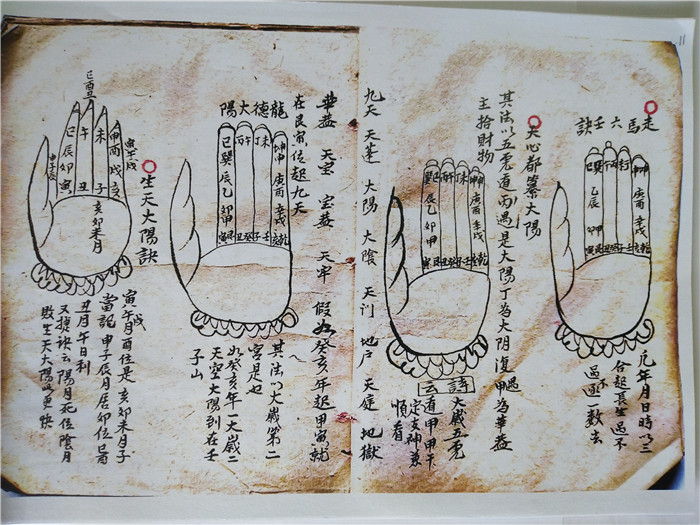 11
走馬六壬訣
元年月日時以三
合起長生過不
過逐數去
巽巳
乙辰
卯甲
寅艮
丙午
丁未
坤申
庚酉
辛戌
乾亥
天心都纂大陽
其法以五虎遁丙遇是大陽丁為大阴復遇甲為華蓋
主拾財物
巽巳
辰乙
卯甲
寅艮
丙午
丁未
坤申
庚酉
辛戌
乾亥
詩云
大歲五虎
遁甲甲午
定支神兼
順看
九天 天蓬 大陽 大陰 天门 地户 天庭 地獄
華蓋 天宝 宝蓋 天牢 假如癸亥年起甲寅就
在艮寅位起九天
龍德大陽
巳巽
辰乙
卯甲
寅艮
丙午
丁未
坤申
庚酉
辛戌
乾亥
其法以大歲第二
宮是也
如癸亥年一大歲二
天空大陽到在壬
子山
生天大陽訣
寅午戌
巳酉丑
申子辰
巳
辰
卯
寅
午
丑
未
子
申
酉
戌
亥
亥卯未月
寅午戌月酉位是亥卯未月子
當記申子辰月居卯位巳酉
丑月午日利
又捷訣云陽月死位陰月
敗生天大陽此更快